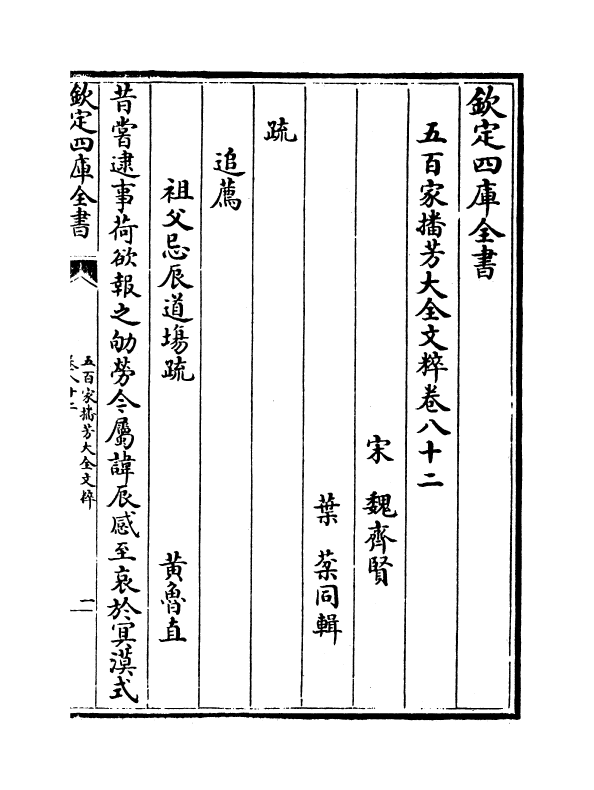 欽定四庫全書
五百家播芳大全文粹卷八十二
宋　魏齊賢
葉　棻同輯
疏
追薦
祖父忌辰道場疏　黄魯直
昔嘗逮事荷欲報之劬勞今屬諱辰感至哀於冥漠式
欽定四庫全書
五百家播芳大全文粹
卷八十二
一